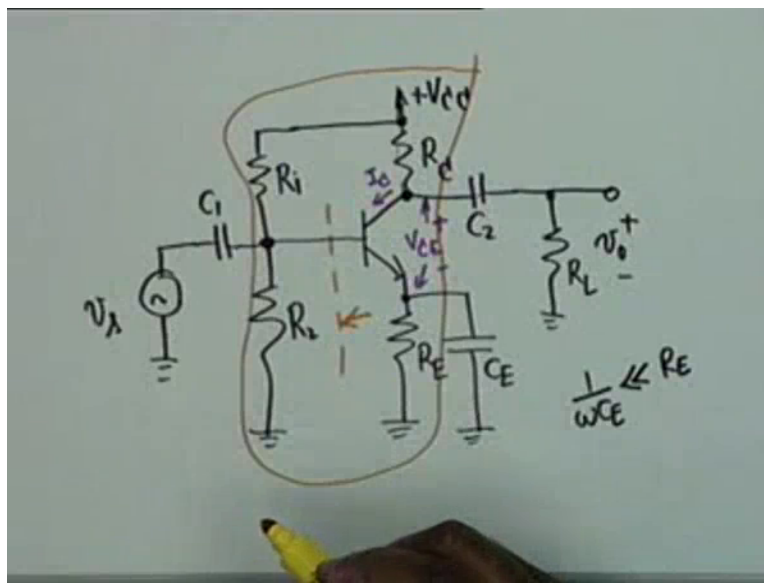 +VCC
RC
Ri
IC
C1
C2
VCE
+
-
vo
+
-
RL
vs
~
R2
RE
CE
1/ωCE << RE